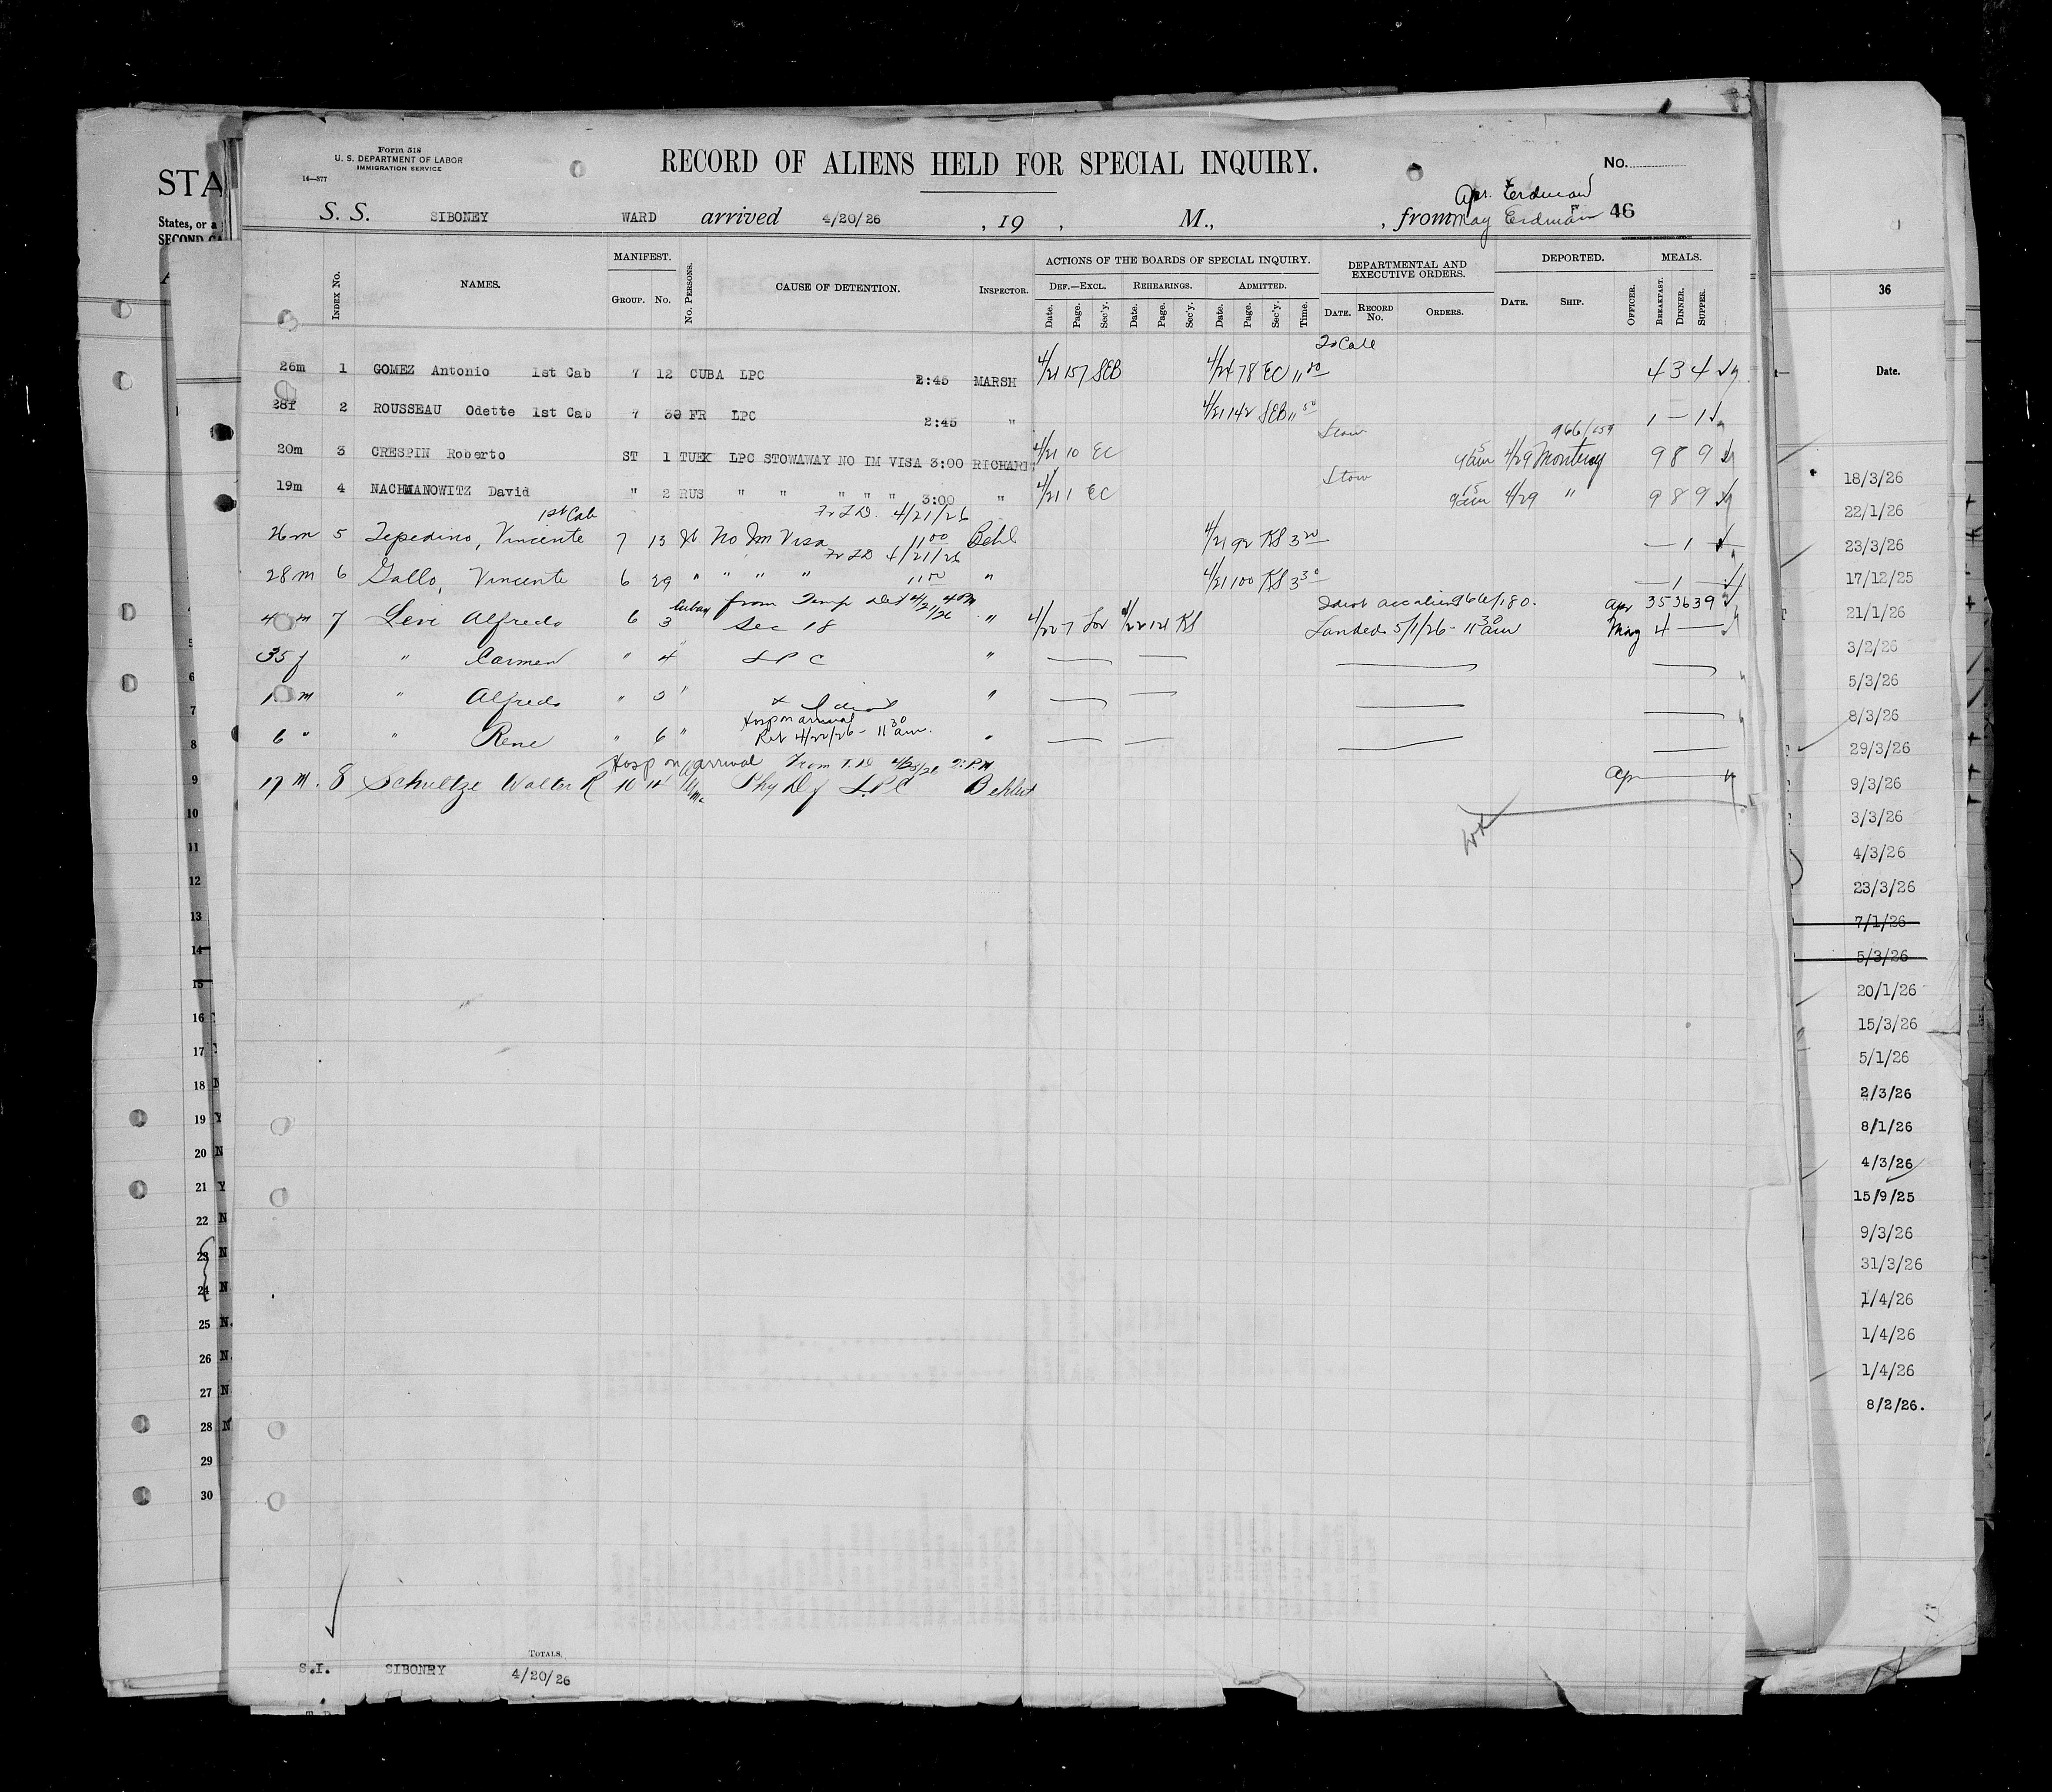 Form 518
U. S. DEPARTMENT OF LABOR
IMMIGRATION SERVICE
14—377
RECORD OF ALIENS HELD FOR SPECIAL INQUIRY.
No.
Apr. Erdman
S. S. SIBONEY WARD arrived 4/20/26 , 19 , M., , from May Erdman 46
Index No. NAMES. MANIFEST. GROUP. No. No. PERSONS. CAUSE OF DETENTION. INSPECTOR. ACTIONS OF THE BOARDS OF SPECIAL INQUIRY. DEPARTMENTAL AND EXECUTIVE ORDERS. DEPORTED. MEALS.
DEF.—EXCL. REHEARINGS. ADMITTED.
Date. Page. Sec'y. Date. Page. Sec'y. Date. Page. Sec'y. Time. DATE. RECORD No. ORDERS. DATE. SHIP. OFFICER. BREAKFAST. DINNER. SUPPER.
26m 1 GOMEZ Antonio 1st Cab 7 12 CUBA LPC 2:45 MARSH 4/21 157 SEB 4/24 78 EC 11 00 4 3 4
28f 2 ROUSSEAU Odette 1st Cab 7 30 FR LPC 2:45 " 4/21 142 SEB 11 50 1 — 1
Stow 966/159
20m 3 CRESPIN Roberto ST 1 TURK LPC STOWAWAY NO IM VISA 3:00 RICHARD 4/21 10 EC 9 15 am 4/29 Monterey 9 8 9
Stow
19m 4 NACHMANOWITZ David " 2 RUS " " " " " 3:00 " 4/21 1 EC 9 15 am 4/29 " 9 8 9
1st Cab Fr T.D. 4/21/26
26m 5 Tepedino, Vincente 7 13 It No Im Visa 11 00 Behl 4/21 92 KS 3 20 — 1 —
Fr T.D. 4/21/26
28m 6 Gallo, Vincente 6 29 " " " " 11 00 " 4/21 100 KS 3 30 — 1 —
Cuban from Temp Det 4/21/26 4PM 966/180. Apr 35 36 39
7 Levi Alfredo 6 3 Sec 18 " 4/22 7 4/22 121 KS Landed 5/1/26 - 11 30 am May 4 —
35 f " Carmen " 4 " L P C "
m " Alfredo " 5 " + Idiot "
Hosp on arrival
6 " " Rene " 6 " Rel 4/22/26 - 11 30 am. "
Hosp on arrival From T.D. 4/23/26 2 PM
17 m. 8 Schultze Walter R 10 14 Phy Df L.P.C Behlert Apr
S.I. SIBONEY TOTALS. 4/20/26
STA
States, or a
SECOND CA
4
5
6
7
8
9
10
11
12
13
14
15
16
17
18
19
20
21
22
23
24
25
26
27
28
29
30
36
Date.
18/3/26
22/1/26
23/3/26
17/12/25
21/1/26
3/2/26
5/3/26
8/3/26
29/3/26
9/3/26
3/3/26
4/3/26
23/3/26
7/1/26
5/3/26
20/1/26
15/3/26
5/1/26
2/3/26
8/1/26
4/3/26
15/9/25
9/3/26
31/3/26
1/4/26
1/4/26
1/4/26
8/2/26.